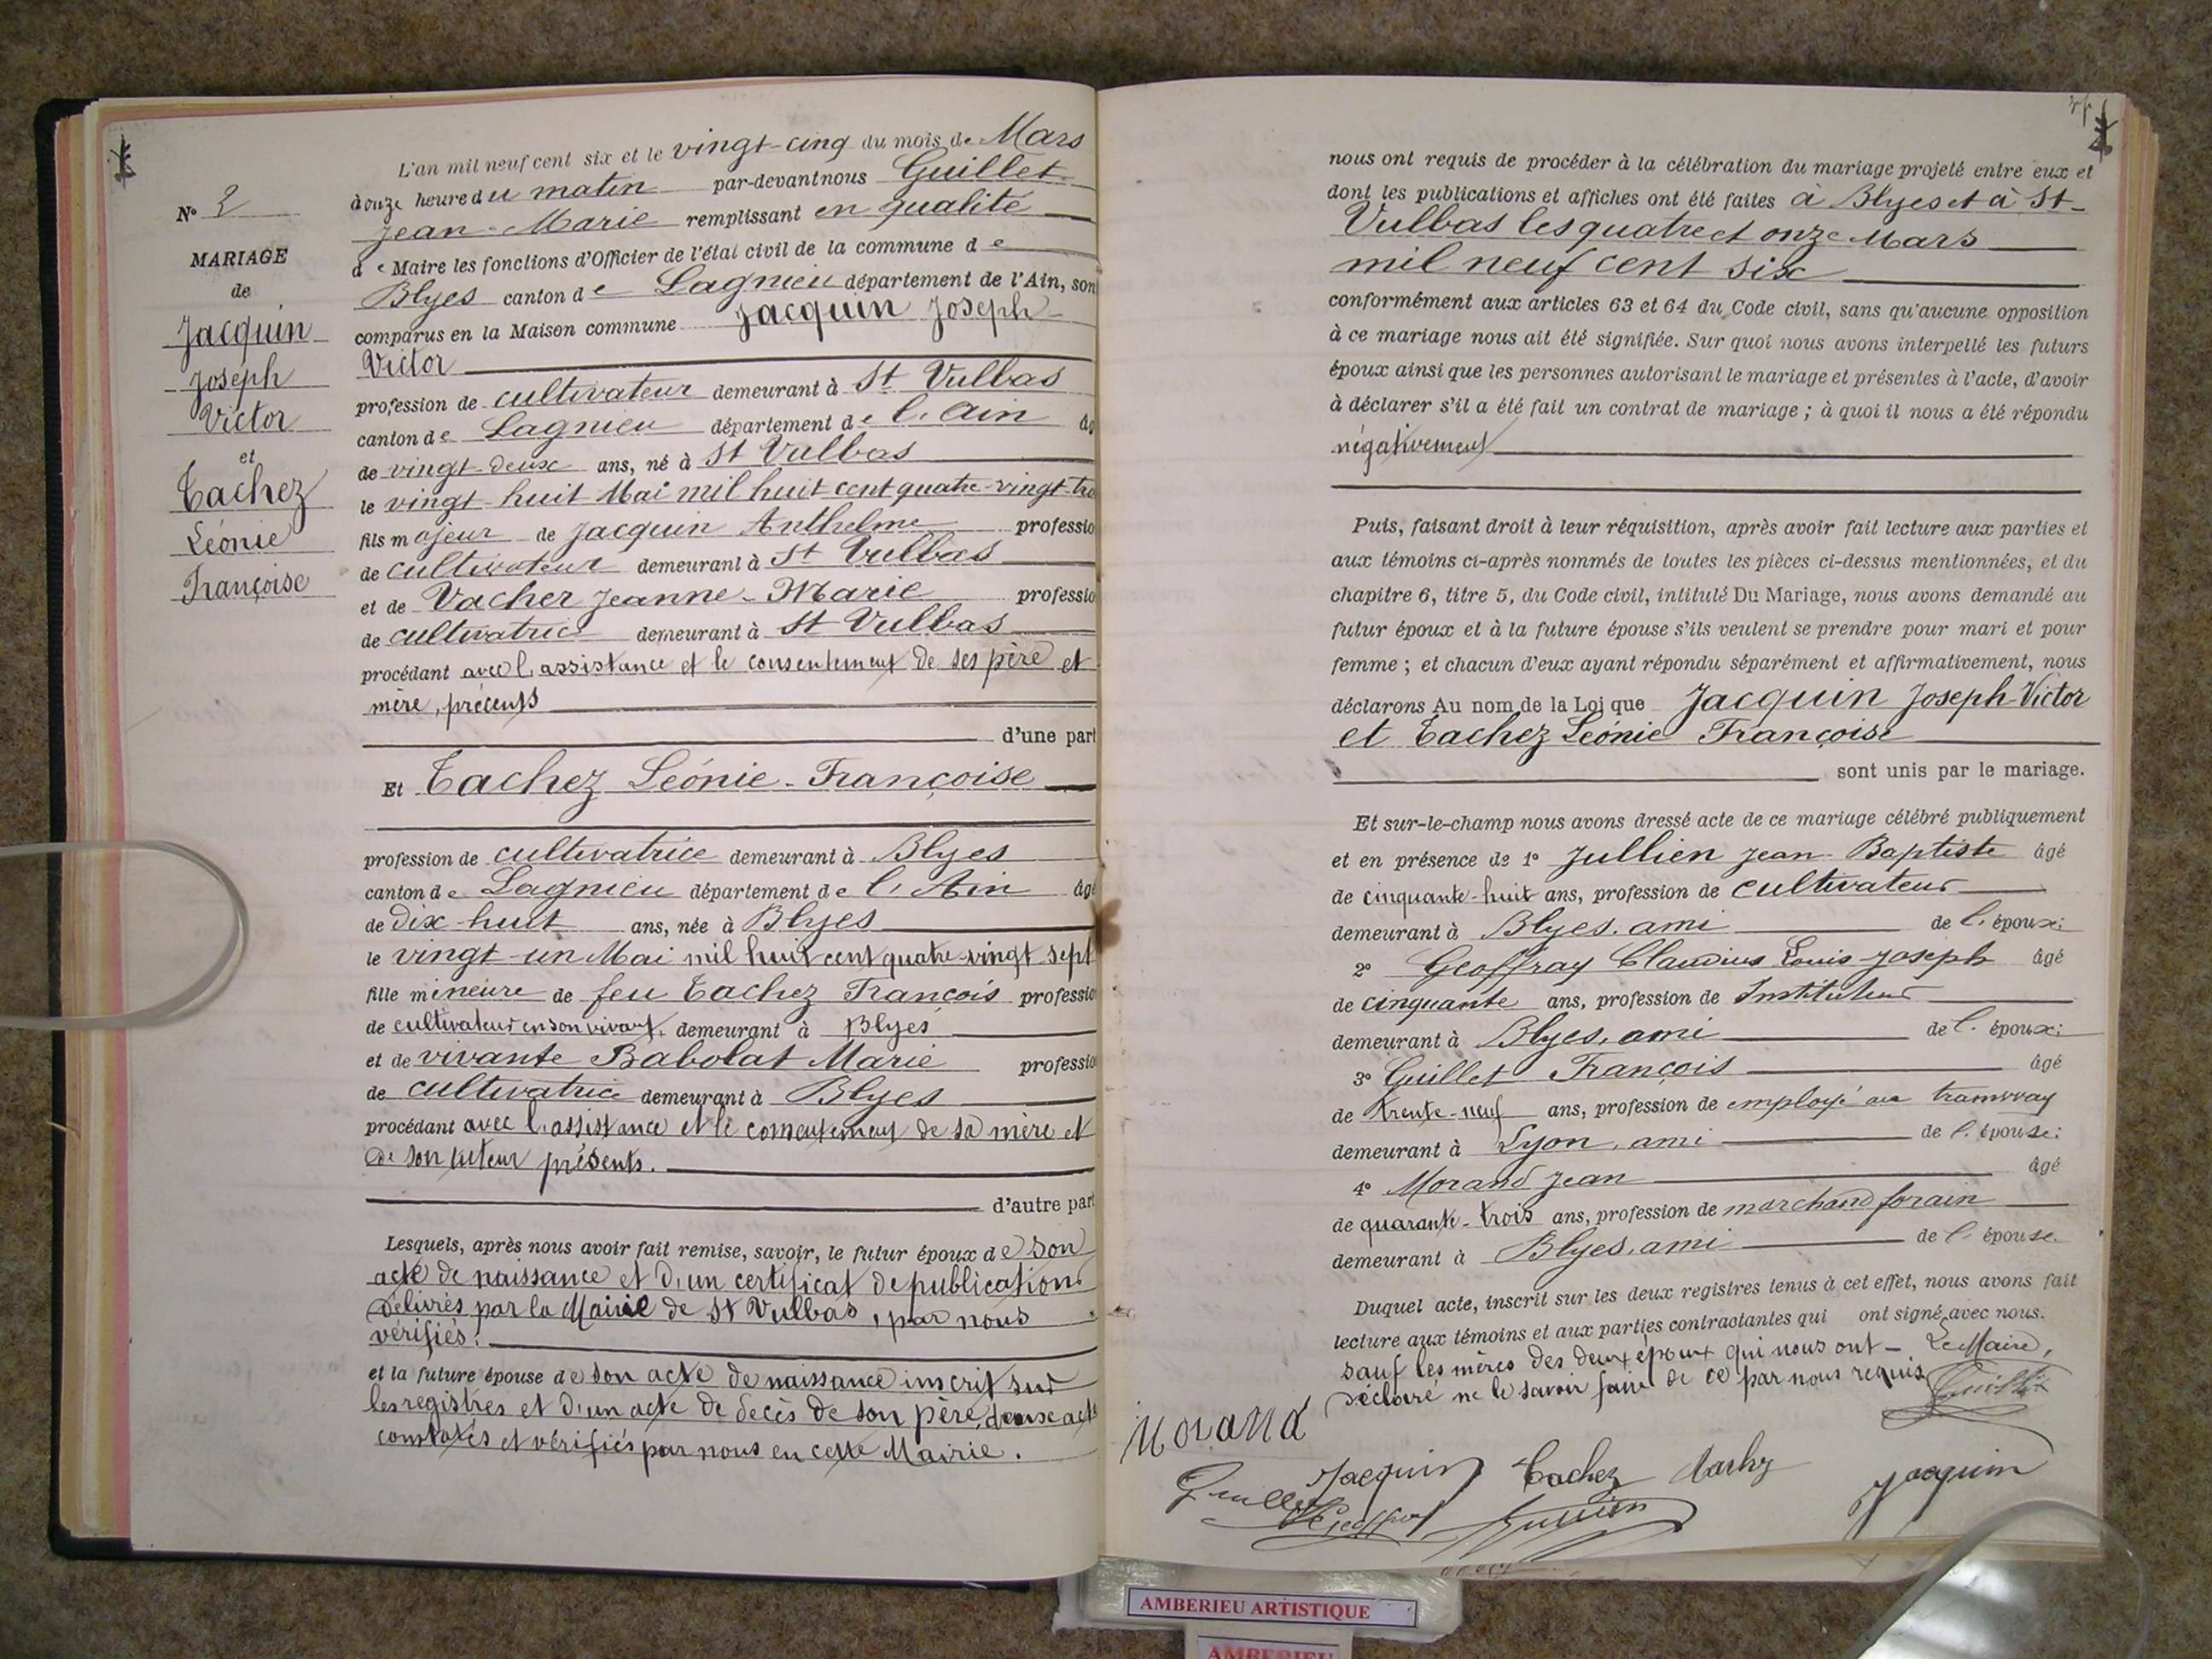 N° 2
MARIAGE
de
Jacquin
Joseph
Victor
et
Tachez
Léonie
Françoise
L'an mil neuf cent six et le vingt-cinq du mois de Mars
à onze heure du matin par-devant nous Guillet
Jean-Marie remplissant en qualité
de Maire les fonctions d'Officier de l'état civil de la commune de
Blyes canton de Lagnieu département de l'Ain, son
comparus en la Maison commune Jacquin Joseph
Victor
profession de cultivateur demeurant à St Vulbas
canton de Lagnieu département de l'Ain âg
de vingt-deux ans, né à St Vulbas
le vingt-huit Mai mil huit cent quatre-vingt-tro
fils majeur de Jacquin Anthelme professio
de cultivateur demeurant à St Vulbas
et de Vacher Jeanne-Marie professio
de cultivatrice demeurant à St Vulbas
procédant avec l'assistance et le consentement de ses père et
mère, précents
d'une part
Et Tachez Léonie-Françoise
profession de cultivatrice demeurant à Blyes
canton de Lagnieu département de l'Ain âgé
de dix-huit ans, née à Blyes
le vingt-un Mai mil huit cent quatre-vingt sept
fille mineure de feu Tachez François professio
de cultivateur en son vivant, demeurant à Blyes
et de vivante Babolat Marie professio
de cultivatrice demeurant à Blyes
procédant avec l'assistance et le consentement de sa mère et
de son tuteur présents.
d'autre part
Lesquels, après nous avoir fait remise, savoir, le futur époux de son
acte de naissance et d'un certificat de publications
délivrés par la Mairie de St Vulbas, par nous
vérifiés.
et la future épouse de son acte de naissance inscrit sur
les registres et d'un acte de décès de son père, deux acts
constatés et vérifiés par nous en cette Mairie.
nous ont requis de procéder à la célébration du mariage projeté entre eux et
dont les publications et affiches ont été faites à Blyes et à St-
Vulbas les quatre et onze Mars
mil neuf cent six
conformément aux articles 63 et 64 du Code civil, sans qu'aucune opposition
à ce mariage nous ait été signifiée. Sur quoi nous avons interpellé les futurs
époux ainsi que les personnes autorisant le mariage et présentes à l'acte, d'avoir
à déclarer s'il a été fait un contrat de mariage ; à quoi il nous a été répondu
négativement
Puis, faisant droit à leur réquisition, après avoir fait lecture aux parties et
aux témoins ci-après nommés de toutes les pièces ci-dessus mentionnées, et du
chapitre 6, titre 5, du Code civil, intitulé Du Mariage, nous avons demandé au
futur époux et à la future épouse s'ils veulent se prendre pour mari et pour
femme ; et chacun d'eux ayant répondu séparément et affirmativement, nous
déclarons Au nom de la Loi que Jacquin Joseph-Victor
et Tachez Léonie Françoise
sont unis par le mariage.
Et sur-le-champ nous avons dressé acte de ce mariage célébré publiquement
et en présence de 1° Jullien Jean-Baptiste âgé
de cinquante-huit ans, profession de cultivateur
demeurant à Blyes, ami de l'époux;
2° Geoffray Claudius Louis Joseph âgé
de cinquante ans, profession de Instituteur
demeurant à Blyes, ami de l'époux;
3° Guillet François âgé
de trente-neuf ans, profession de employé au tramway
demeurant à Lyon, ami de l'épouse;
4° Morand Jean âgé
de quarante-trois ans, profession de marchand forain
demeurant à Blyes, ami de l'épouse.
Duquel acte, inscrit sur les deux registres tenus à cet effet, nous avons fait
lecture aux témoins et aux parties contractantes qui ont signé avec nous.
sauf les mères des deux époux qui nous ont Le Maire,
déclaré ne le savoir faire de ce par nous requis
Guillet
Morand
Jacquin Tachez Jacquin
Guillet Geoffray Jullien
AMBERIEU ARTISTIQUE
AMBERIEU